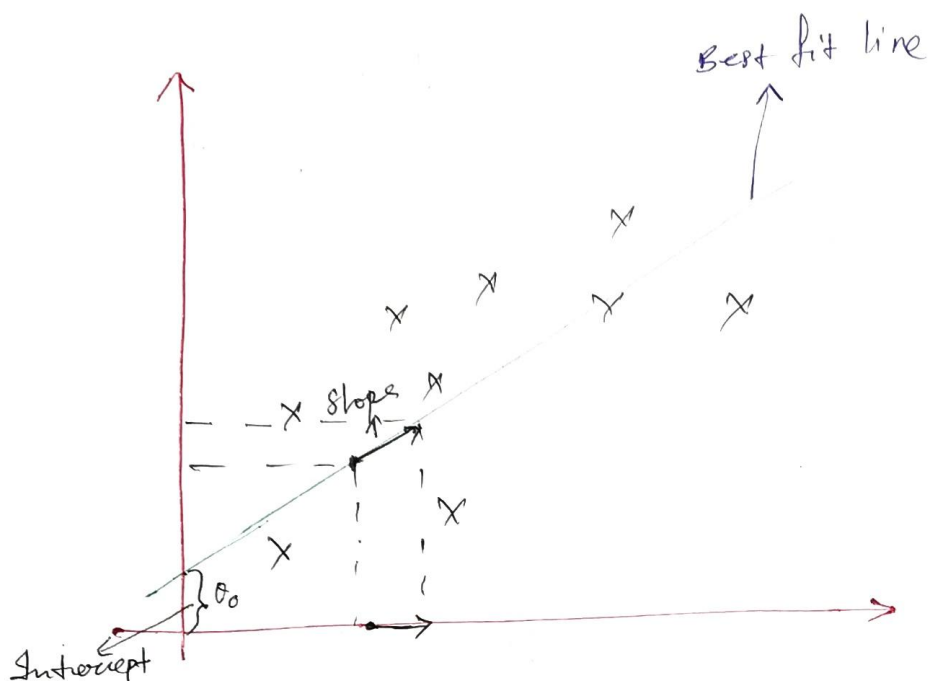 Best fit line
Slope
θ₀
Intercept